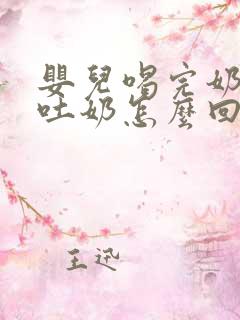 嬰兒喝完奶
吐奶怎麼回
王迅